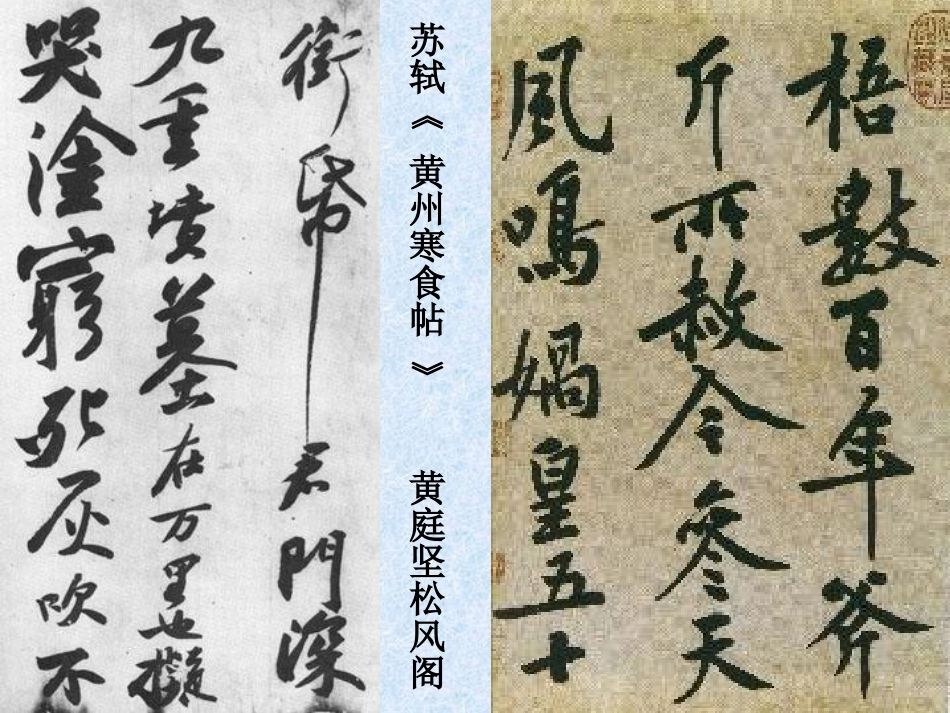 梧數百年斧
斤所赦令參天
風鳴媧皇五十
苏轼《黄州寒食帖》 黄庭坚松风阁
衘帋君門深
九重墳墓在万里也擬
哭塗窮死灰吹不